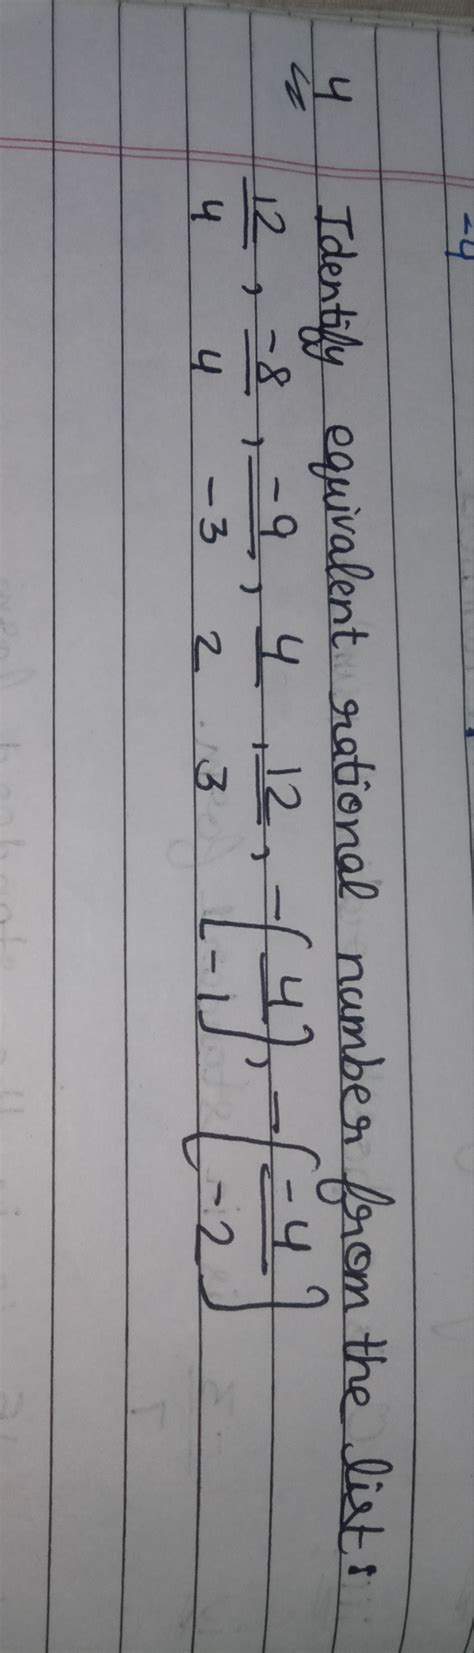 -4
4 Identify equivalent rational number from the list:
12/4, -8/4, -9/-3, 4/2, 12/3, -(4/-1), -(-4/-2)